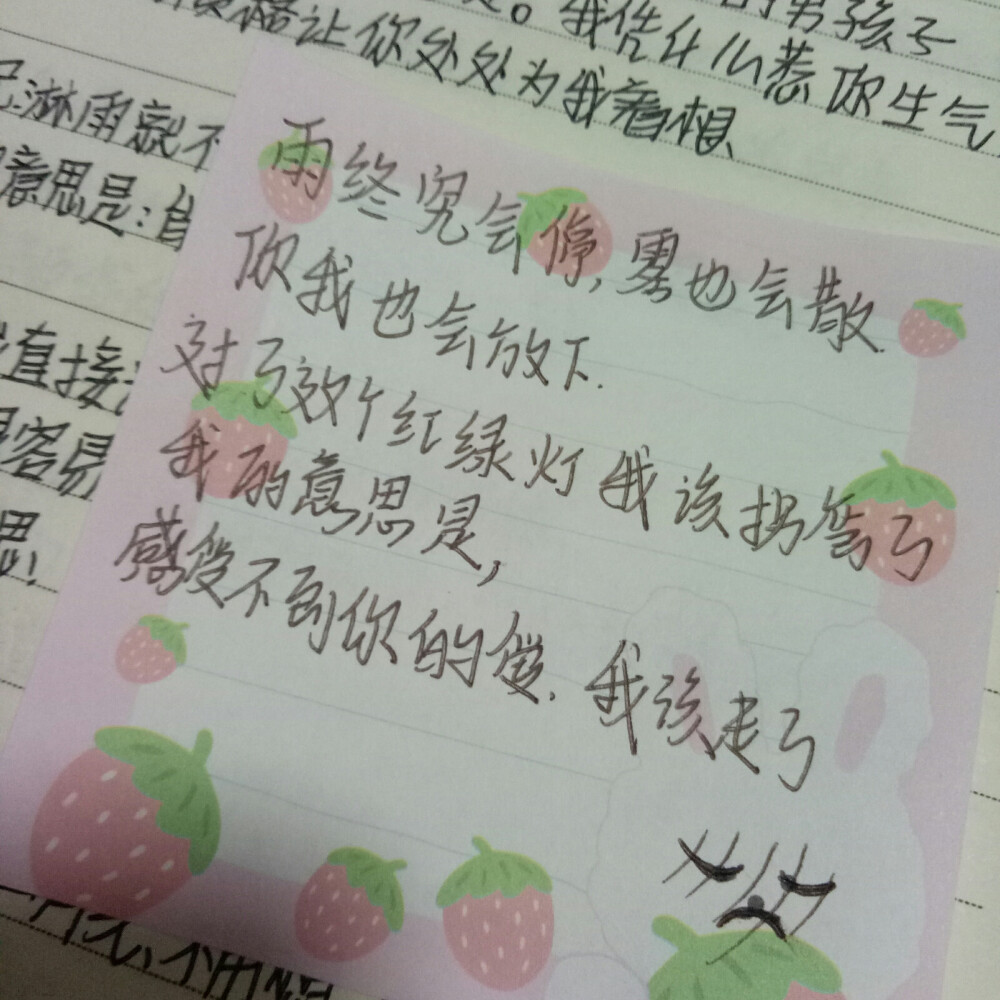 的男孩子
。我凭什么惹你生气
让你处处为我着想
淋雨就不
意思是:
直接
容易
思!
雨终究会停,雾也会散.
你我也会放下.
过了效个红绿灯我该拐弯了
我的意思是,
感受不到你的爱.我该走了